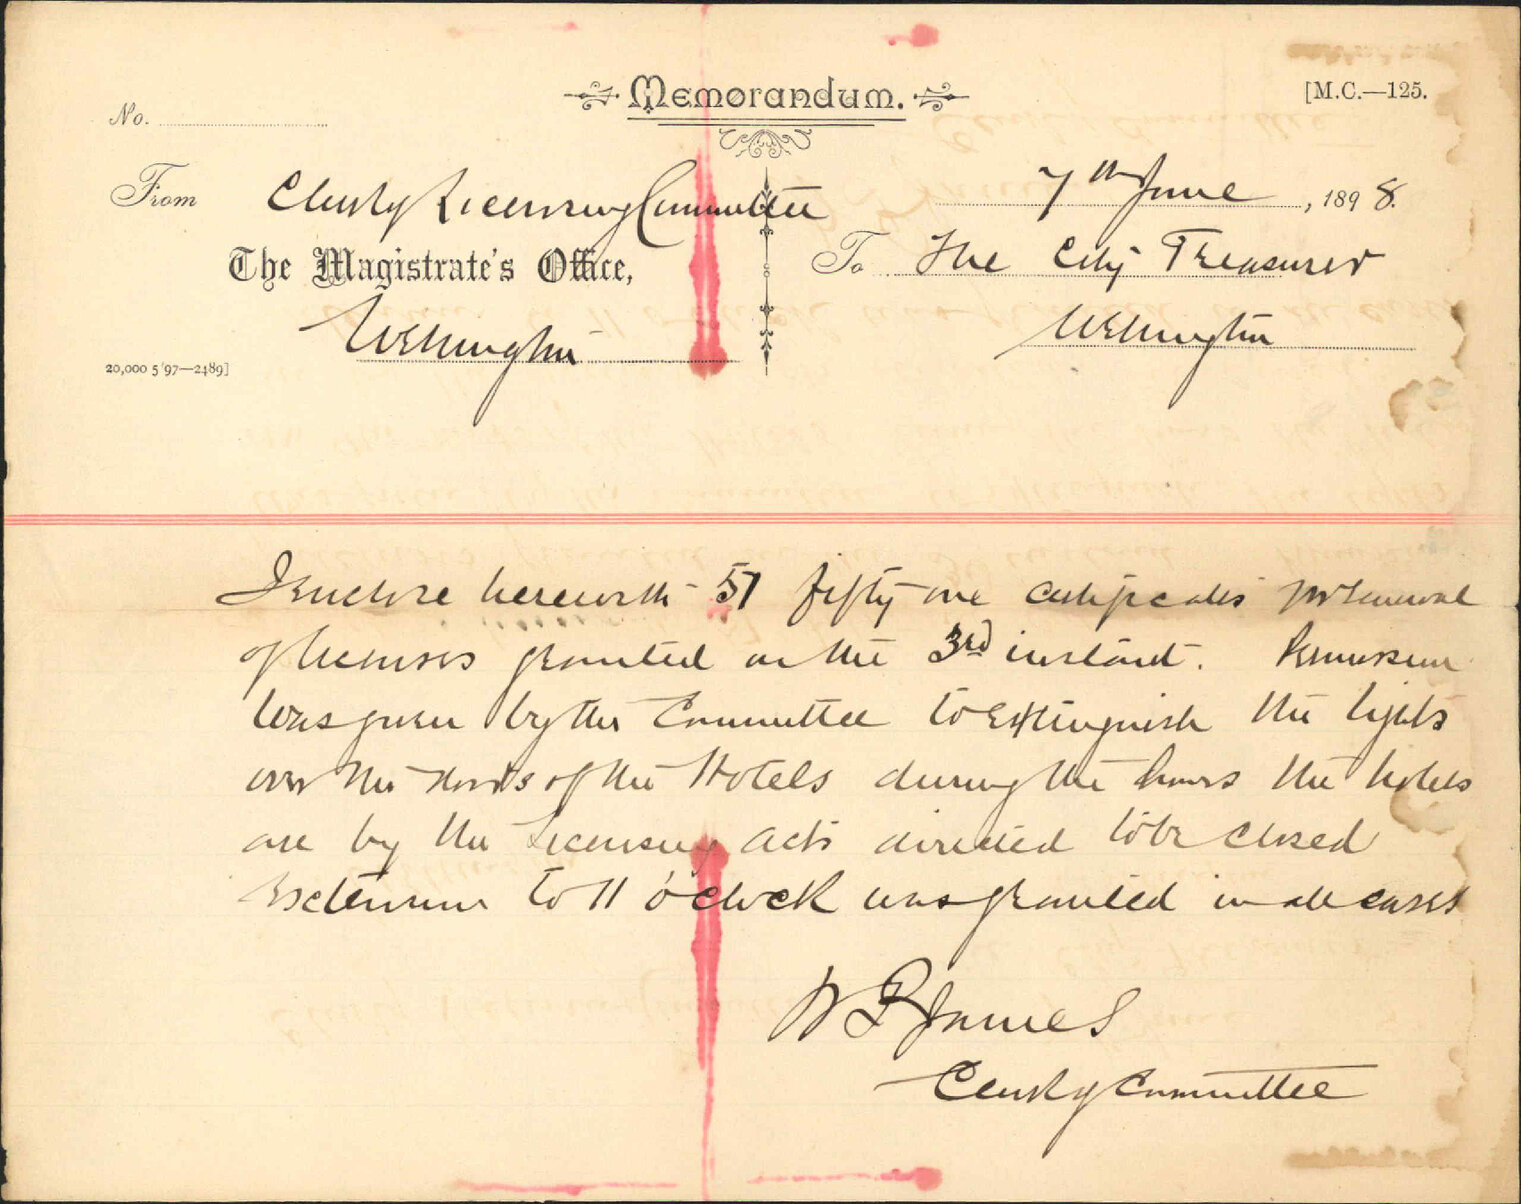 Memorandum.
[M.C.—125.
No.
From Clerk of Licensing Committee
The Magistrate's Office,
Wellington
20,000 5/97—2489]
7th June, 1898.
To The City Treasurer
Wellington
I enclose herewith 51 fifty one certificates for renewal
of licenses granted on the 3rd instant. Permission
was given by the Committee to extinguish the lights
over the doors of the Hotels during the hours the hotels
are by the Licensing Acts directed to be closed
Extension to 11 o'clock was granted in all cases
James
Clerk of Committee